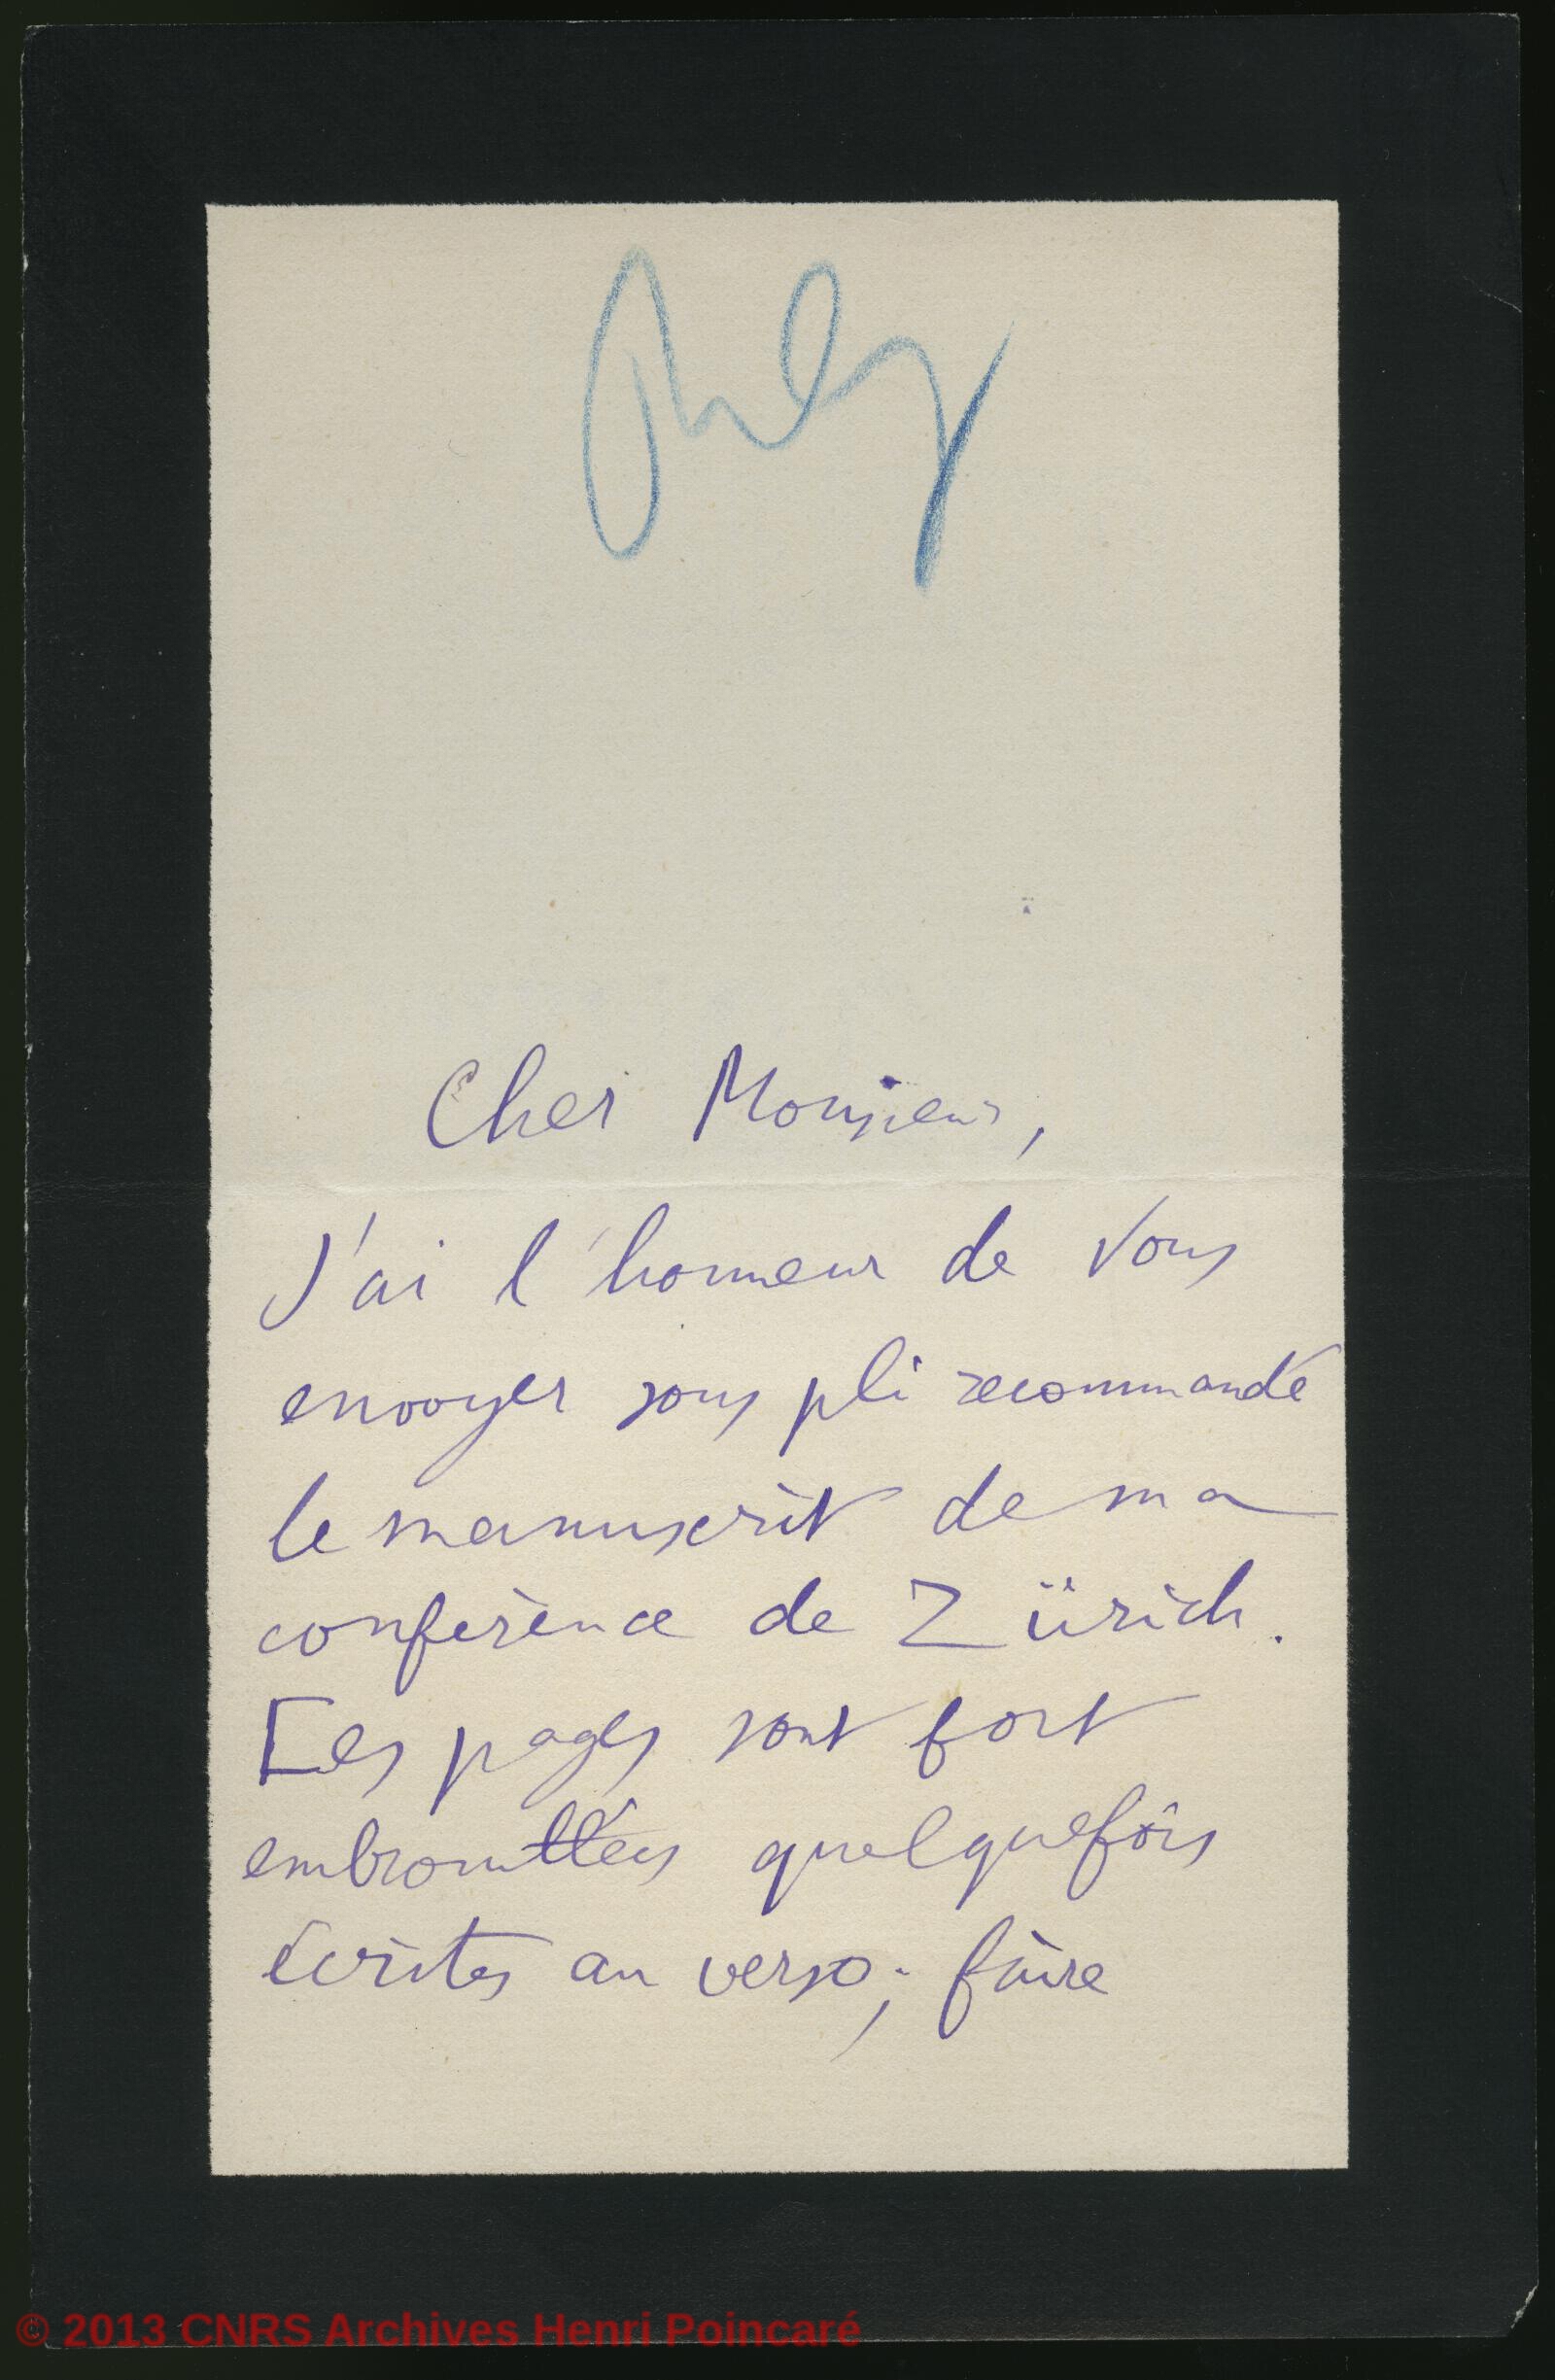 Cher Monsieur,
J'ai l'honneur de vous
envoyer sous pli recommandé
le manuscrit de ma
conférence de Zürich.
Les pages sont fort
embrouillées quelquefois
écrites au verso; faire
© 2013 CNRS Archives Henri Poincaré